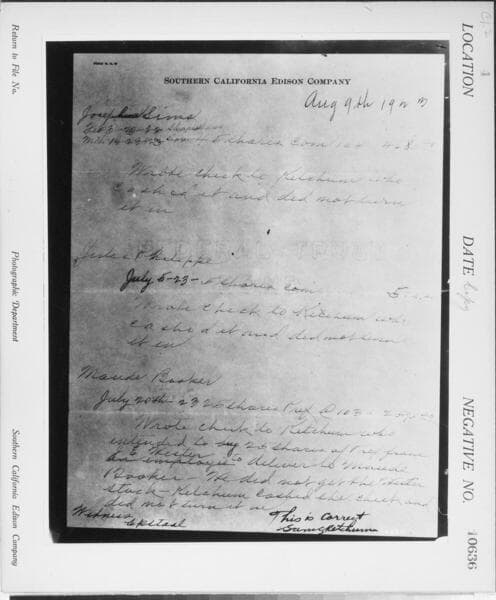 SOUTHERN CALIFORNIA EDISON COMPANY
Aug 9th 1923
Joseph Sims
shares com
Wrote check to Ketchum who
cashed it and did not turn
it in
July 5-23- 5 shares com
Wrote check to Ketchum who
cashed it and did not turn
it in
Maude Booker
July 20th-23 25 shares Pref @ 103
Wrote check to Ketchum who
intended to buy 25 shares of Pref from
an employee to deliver to Maude
Booker. He did not get the
stock - Ketchum cashed the check and
did not turn it in
Witness
This is correct
Ketchum
LOCATION
DATE
Copy
NEGATIVE NO.
10636
Return to File No.
Photographic Department
Southern California Edison Company